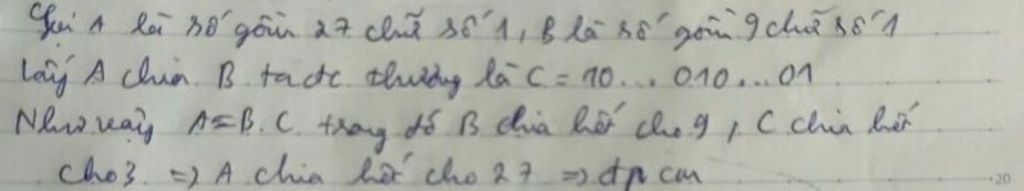 Gọi A là số gồm 27 chữ số 1, B là số gồm 9 chữ số 1
Lấy A chia B ta đc thương là C = 10...010...01
Như vậy A=B.C. trong đó B chia hết cho 9, C chia hết
cho 3. => A chia hết cho 27 => đpcm
20